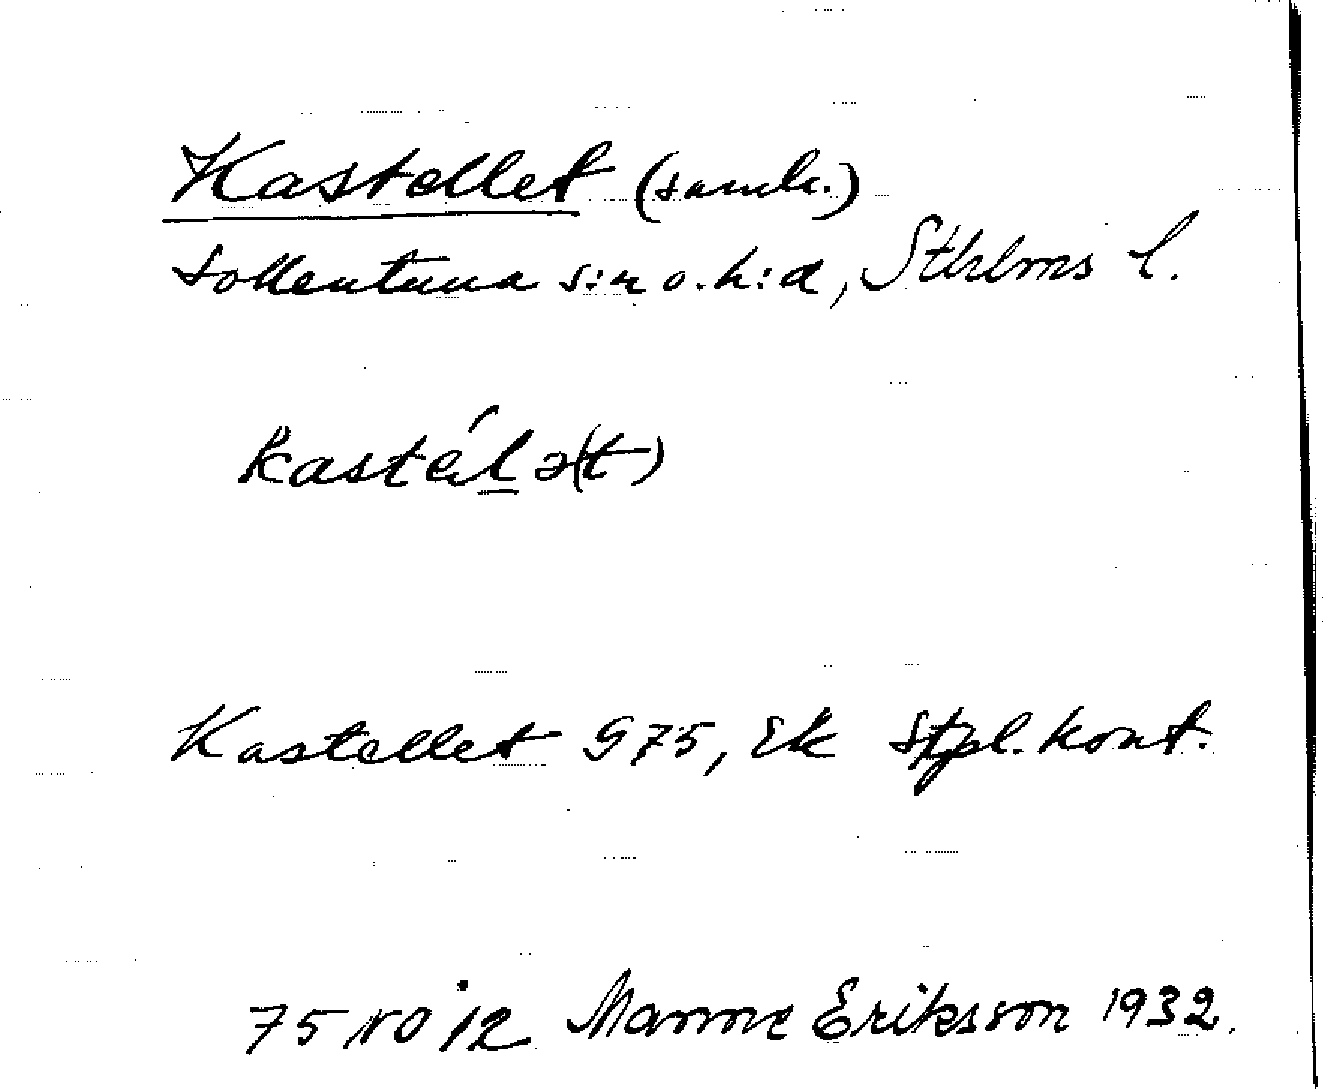 Kastellet (samh.)
Sollentuna s:n o. h:d, Sthlms l.
kastél̲ə(t)
Kastellet G75, Ek Stpl. kont.
75 NO /12 Manne Eriksson 1932.